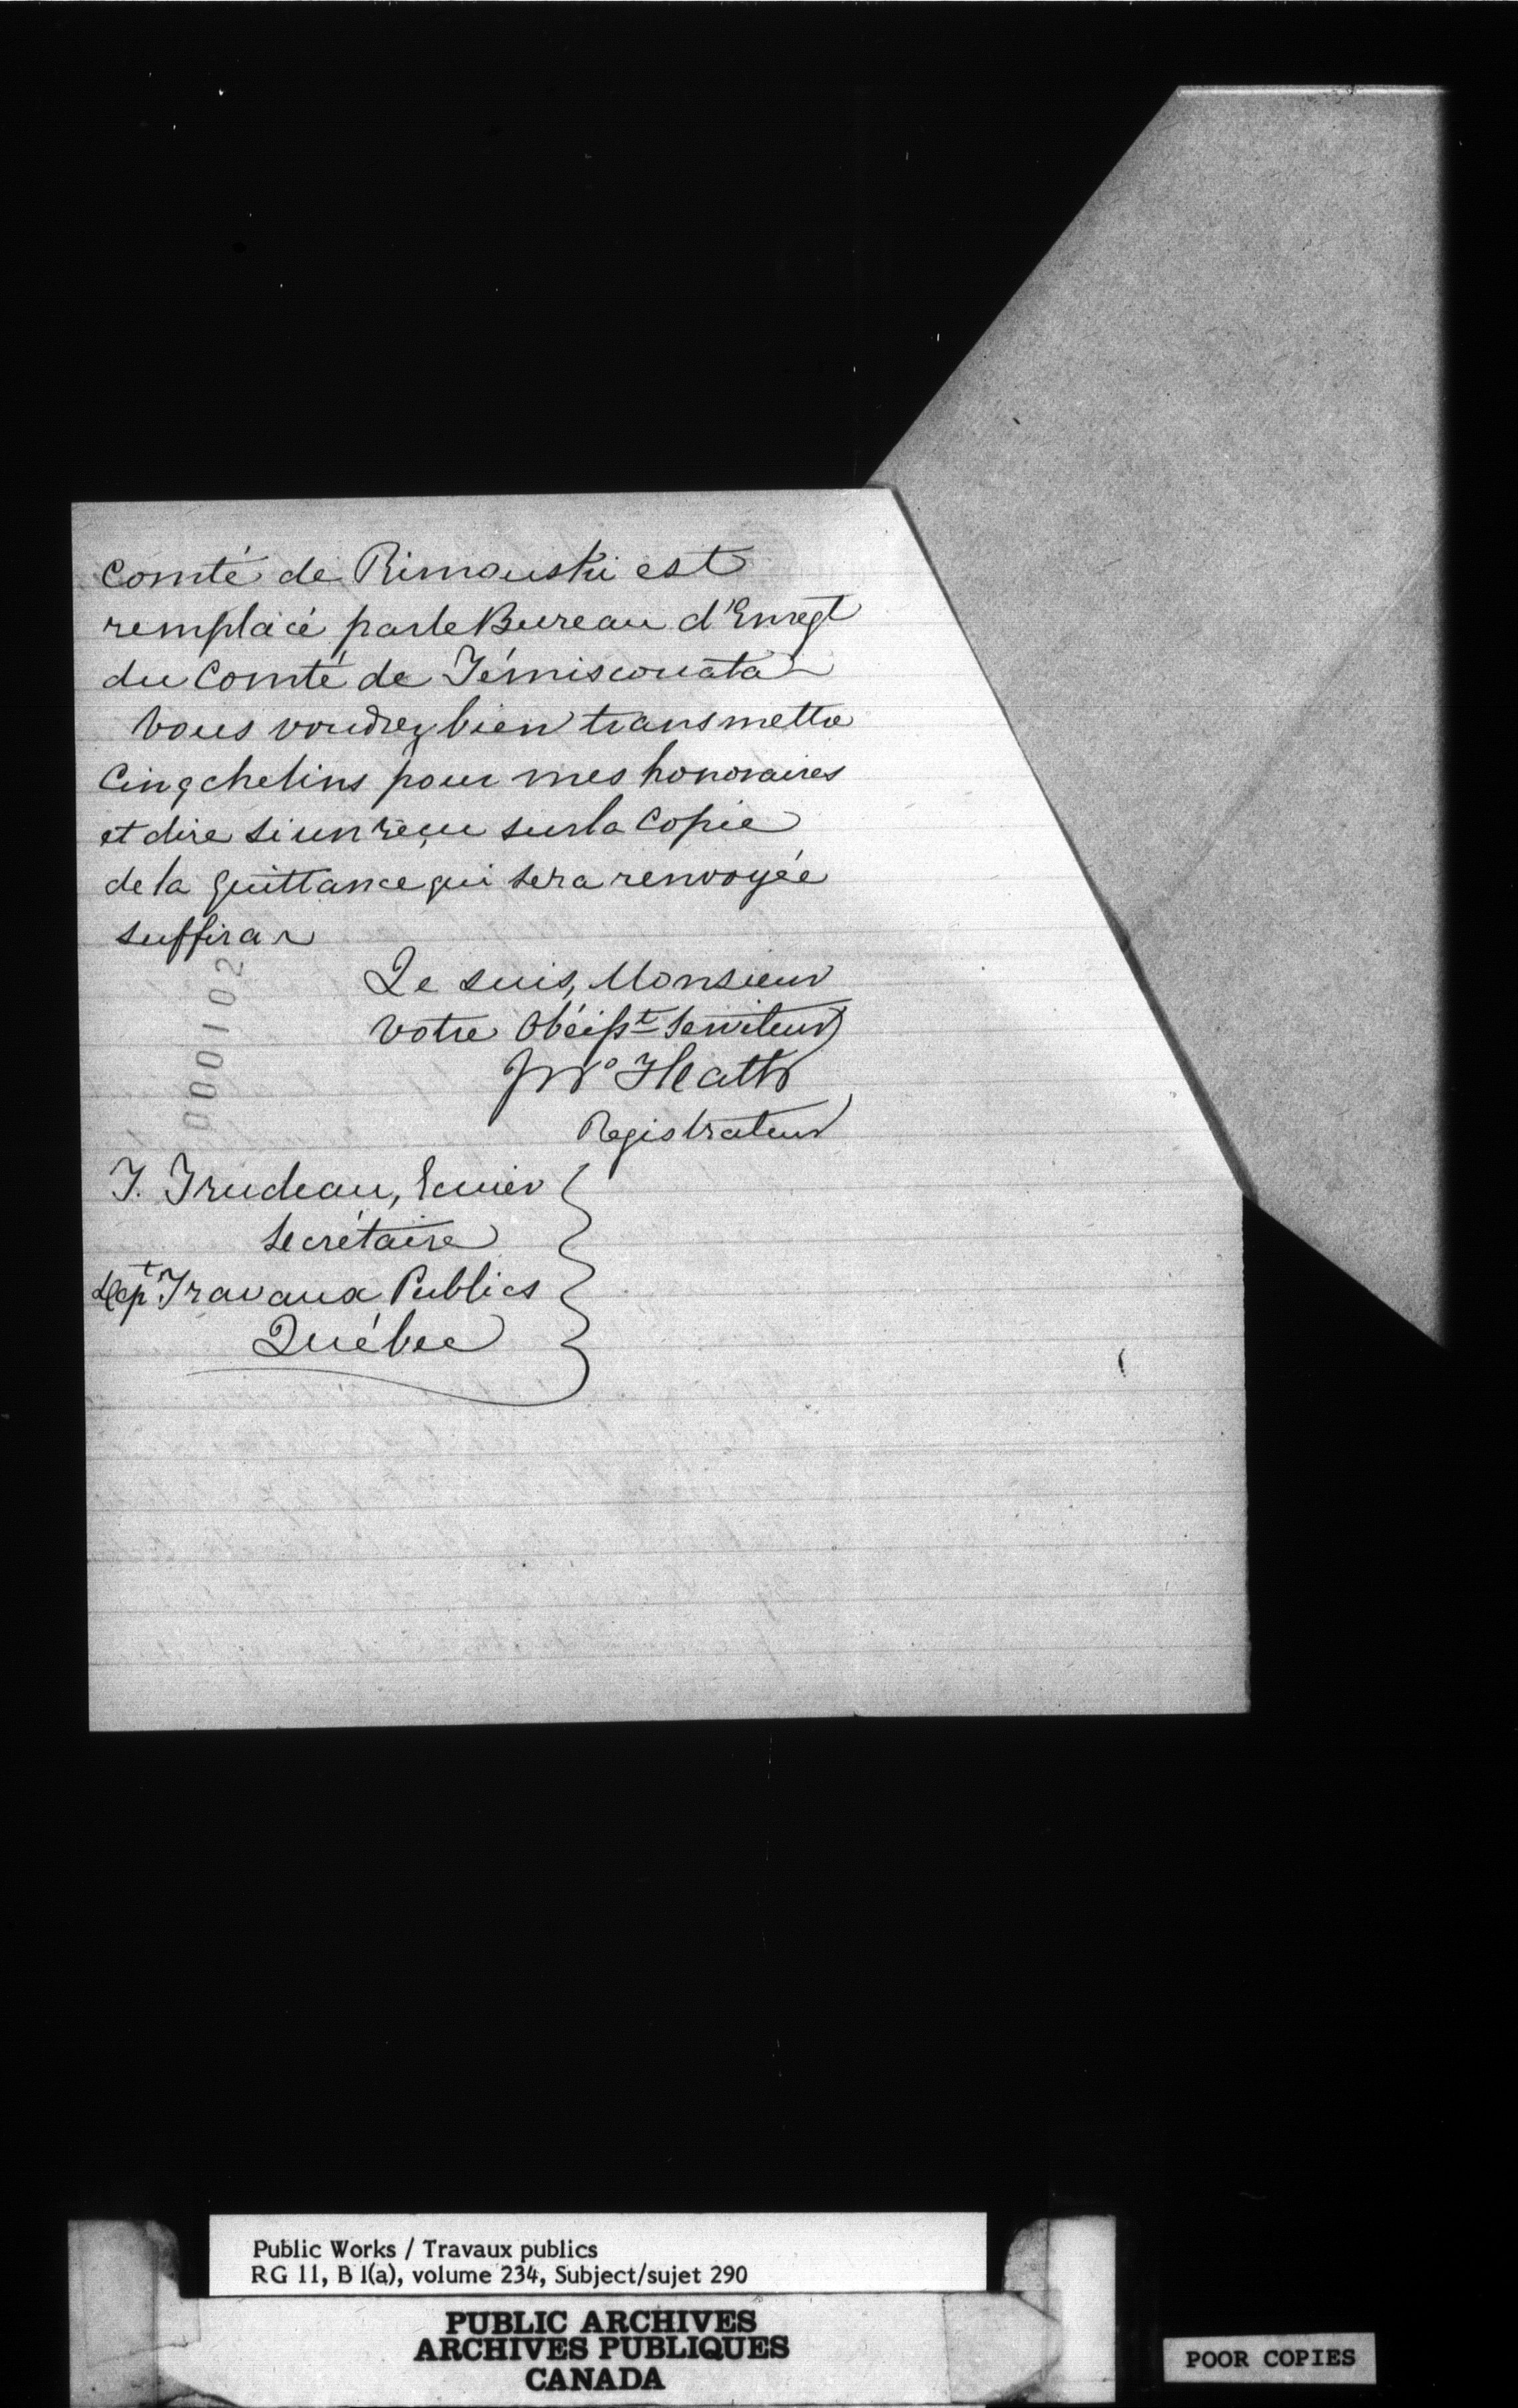 Comté de Rimouski est
remplacé par le Bureau d'Enregt
du Comté de Témiscouata
Vous voudrez bien transmettre
Cinq chelins pour mes honoraires
et dire si un reçu sur la Copie
de la quittance qui sera renvoyée
suffira
Je suis, Monsieur
Votre Obéisst Serviteur
Jno Heath
Registrateur
000102
T. Trudeau, Ecuier
Secrétaire
Dept Travaux Publics
Québec
Public Works / Travaux publics
RG 11, B 1(a), volume 234, Subject/sujet 290
PUBLIC ARCHIVES
ARCHIVES PUBLIQUES
CANADA
POOR COPIES